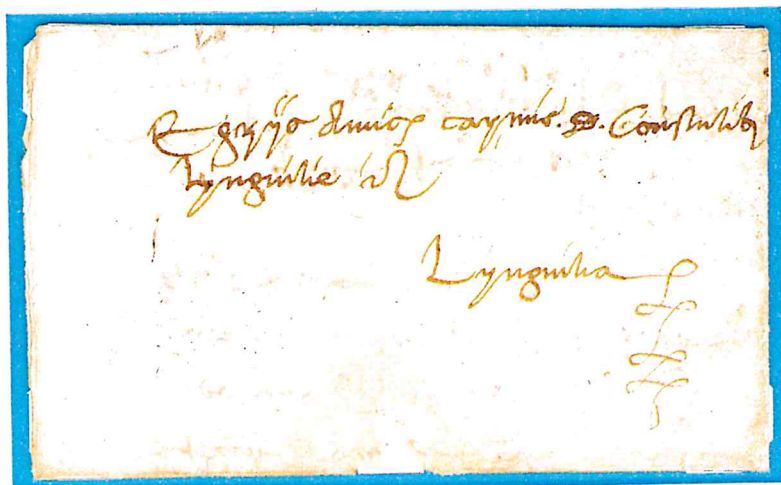 Egrijs Amicis carmis. D. Consulib
Lynguilie et
Lynguilia